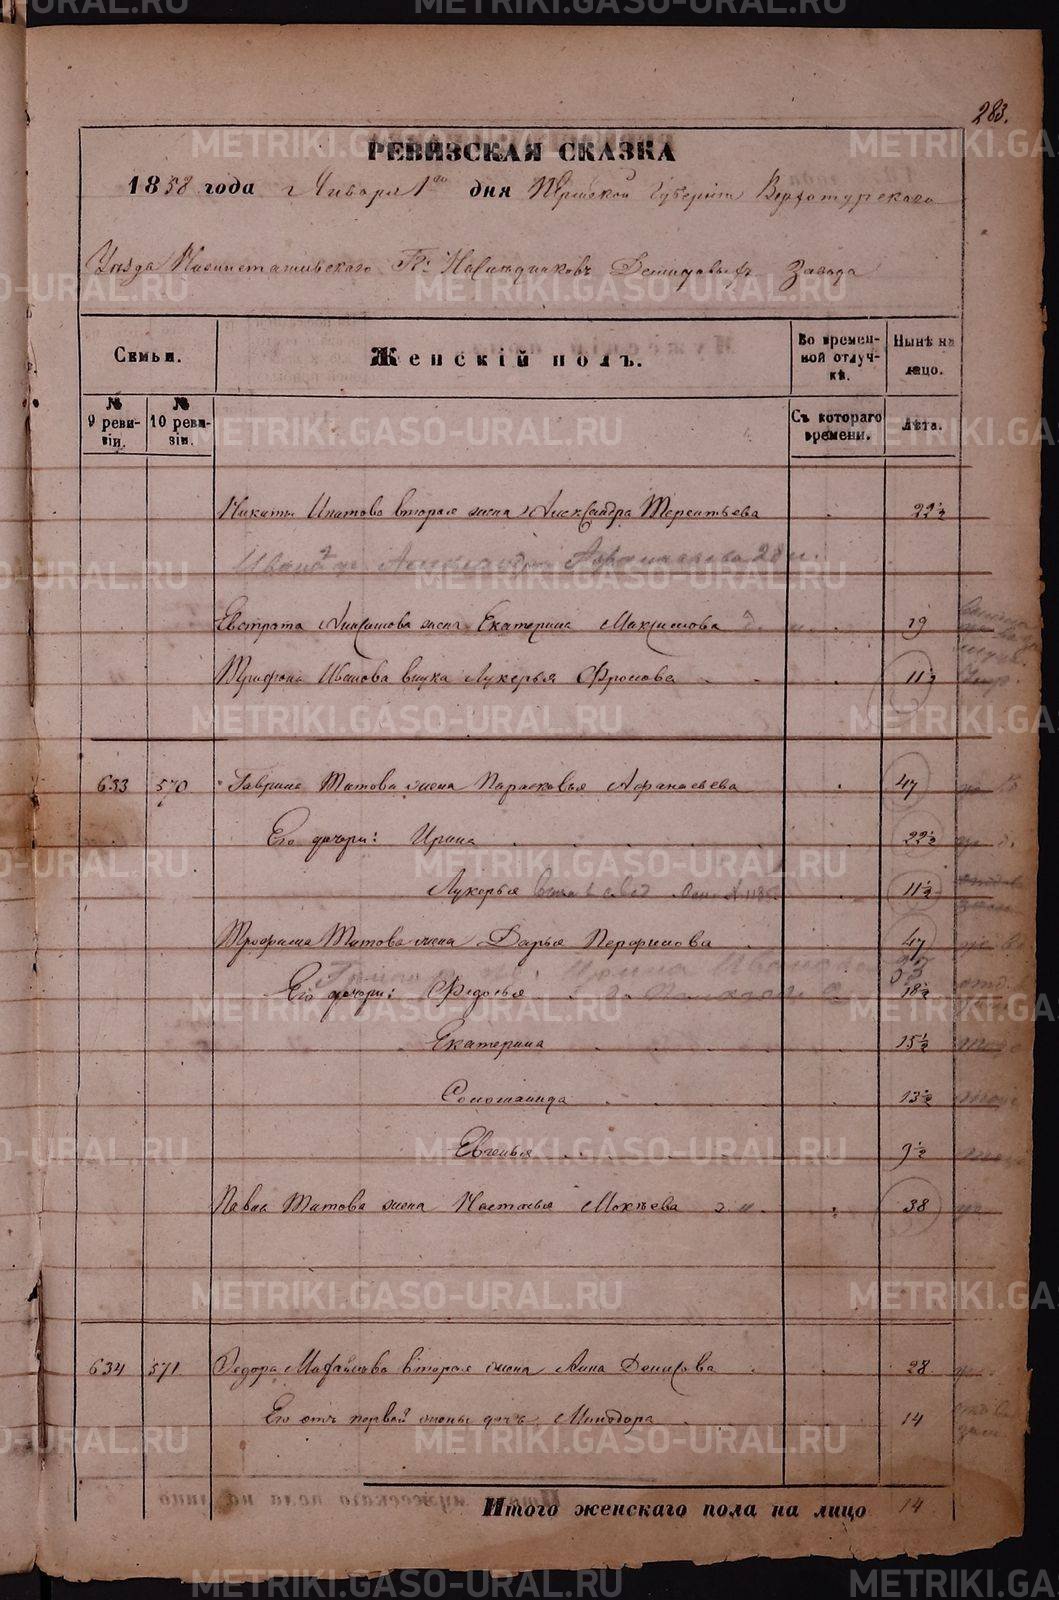 283.
РЕВИЗСКАЯ СКАЗКА
1858 года Января 1го дня Пермской Губерніи Верхотурскаго
Уезда Нижнетагильскаго Гг. Наследниковъ Демидовыхъ Завода
Семьи.
Женскій полъ.
Во времен-
ной отлуч-
кѣ.
Нынѣ на
лицо.
№
9 реви-
зіи.
№
10 реви-
зіи.
Съ котораго
времени.
Лѣта.
Никиты Ипатова вторая жена Александра Терентьева 22½
Александра 28
Евстрата жена Екатерина Максимова 19
Трифона Иванова внука Лукерья Фролова 11½
633 570 Гаврила Титова жена Парасковья Афанасьева 47
Его дочери: Ирина 22½
Лукерья 11½
Трофима Титова жена Дарья Перфилова 47
Ирина Иванова
Его дочери: Федосья 18½
Екатерина 15½
Соломанида 13½
Евгенья 9½
Павла Титова жена Настасья Мокѣева 38
634 571 Федора Михайлова вторая жена Анна Денисова 28
Его отъ первой жены дочь Минодора 14
Итого женскаго пола на лицо 14
METRIKI.GASO-URAL.RU